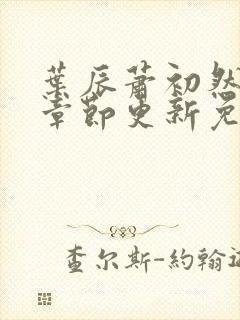 葉辰蕭初然
章節更新免
查尔斯-約翰遜